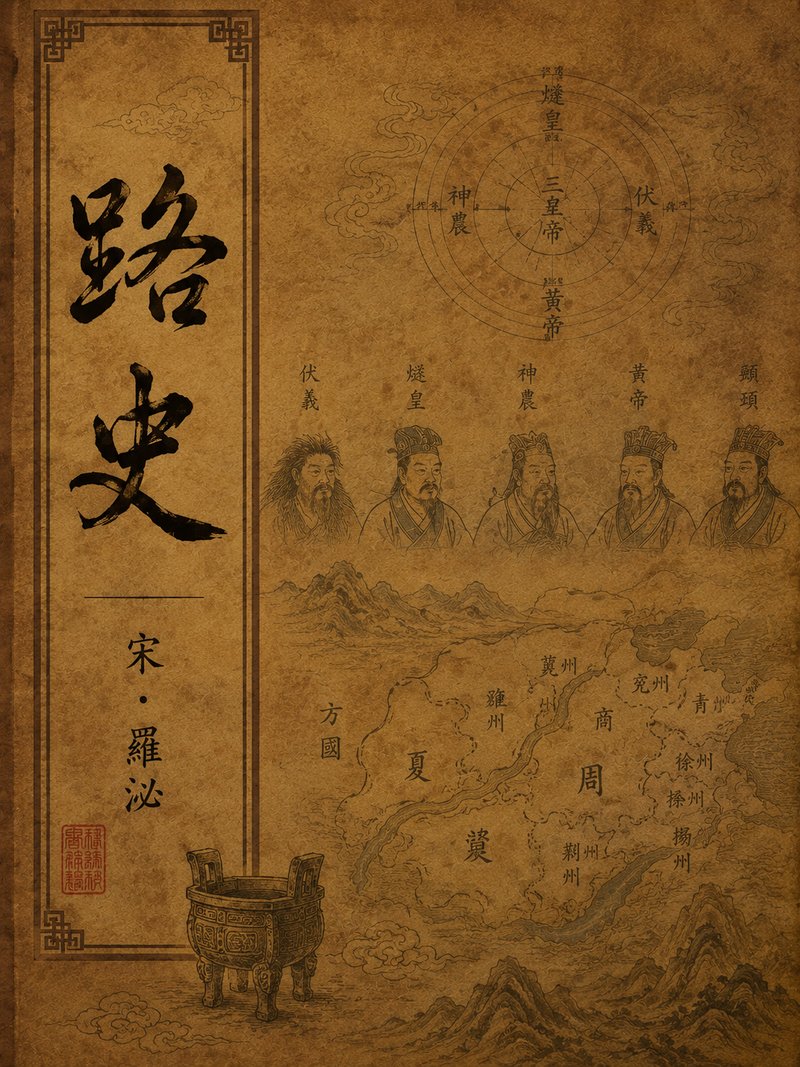 路史
宋·羅泌
燧皇
神農
三皇帝
伏義
黃帝
伏義
燧皇
神農
黃帝
顓頊
方國
夏
雍州
商
周
兗州
青州
徐州
揚州